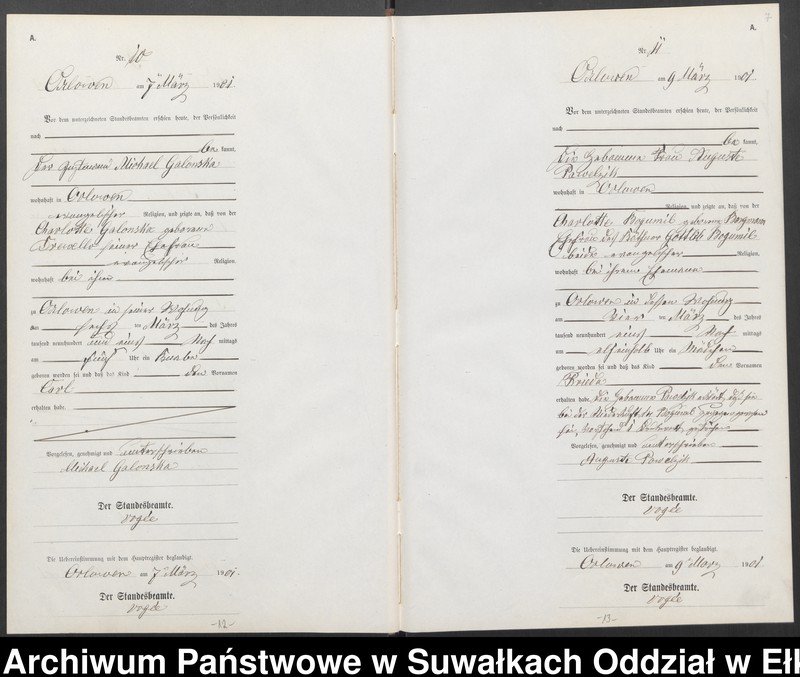 A.
Nr. 10
Orlowen am 7 März 1901
Vor dem unterzeichneten Standesbeamten erschien heute, der Persönlichkeit
nach
be kannt,
Der Michael Galonska
wohnhaft in Orlowen
evangelischer Religion, und zeigte an, daß von der
Charlotte Galonska geborenen
seiner Ehefrau
evangelischer Religion,
wohnhaft bei ihm
zu Orlowen in seiner Wohnung
am sechs ten März des Jahres
tausend neunhundert und eins Nach mittags
um fünf Uhr ein Knabe
geboren worden sei und daß das Kind den Vornamen
Carl
erhalten habe.
Vorgelesen, genehmigt und unterschrieben
Michael Galonska
Der Standesbeamte.
Die Uebereinstimmung mit dem Hauptregister beglaubigt.
Orlowen am 7 März 1901.
Der Standesbeamte.
-12-
7
A.
Nr. 11
Orlowen am 9 März 1901
Vor dem unterzeichneten Standesbeamten erschien heute, der Persönlichkeit
nach
be kannt,
Die Hebamme Frau Auguste
Pawelzik
wohnhaft in Orlowen
Religion, und zeigte an, daß von der
Charlotte Bogumil geborenen
Ehefrau des Gottlieb Bogumil
beide evangelischer Religion,
wohnhaft bei ihrem Ehemann
zu Orlowen in dessen Wohnung
am vier ten März des Jahres
tausend neunhundert eins Nach mittags
um Uhr ein Mädchen
geboren worden sei und daß das Kind den Vornamen
Frieda
erhalten habe. Die Hebamme Pawelzik erklärt, daß sie
bei der Niederkunft der Bogumil zugegen gewesen
sei.
Vorgelesen, genehmigt und unterschrieben
Auguste Pawelzik
Der Standesbeamte.
Die Uebereinstimmung mit dem Hauptregister beglaubigt.
Orlowen am 9 März 1901
Der Standesbeamte.
-13-
Archiwum Państwowe w Suwałkach Oddział w Ełk